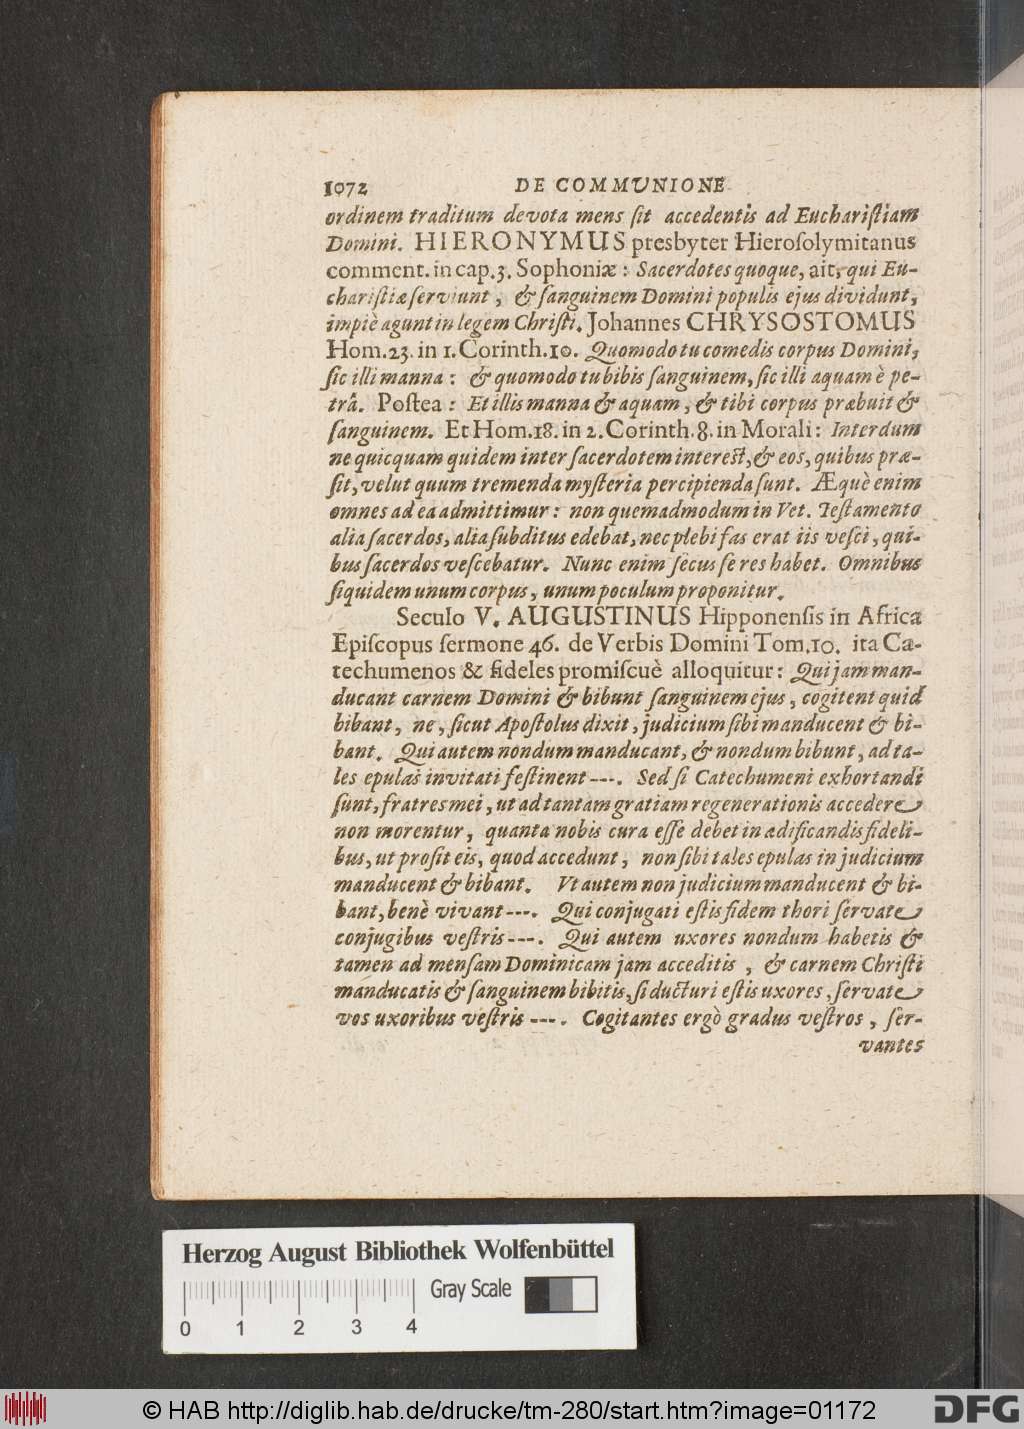 1072 DE COMMUNIONE
ordinem traditum devota mens ſit accedentis ad Euchariſtiam
Domini. HIERONYMUS presbyter Hieroſolymitanus
comment. in cap. 3. Sophoniæ: Sacerdotes quoque, ait, qui Eu-
chariſtiæ ſerviunt, & ſanguinem Domini populis ejus dividunt,
impiè agunt in legem Chriſti. Johannes CHRYSOSTOMUS
Hom. 23. in 1. Corinth. 10. Quomodo tu comedis corpus Domini,
ſic illi manna: & quomodo tu bibis ſanguinem, ſic illi aquam è pe-
trâ. Poſtea: Et illis manna & aquam, & tibi corpus præbuit &
ſanguinem. Et Hom. 18. in 2. Corinth. 8. in Morali: Interdum
ne quicquam quidem inter ſacerdotem intereſt, & eos, quibus præ-
ſit, velut quum tremenda myſteria percipienda ſunt. Æquè enim
omnes ad ea admittimur: non quemadmodum in Vet. Teſtamento
alia ſacerdos, alia ſubditus edebat, nec plebi fas erat iis veſci, qui-
bus ſacerdos veſcebatur. Nunc enim ſecus ſe res habet. Omnibus
ſiquidem unum corpus, unum poculum proponitur.
Seculo V. AUGUSTINUS Hipponenſis in Africa
Epiſcopus ſermone 46. de Verbis Domini Tom. 10. ita Ca-
techumenos & fideles promiſcuè alloquitur: Qui jam man-
ducant carnem Domini & bibunt ſanguinem ejus, cogitent quid
bibant, ne, ſicut Apoſtolus dixit, judicium ſibi manducent & bi-
bant. Qui autem nondum manducant, & nondum bibunt, ad ta-
les epulas invitati feſtinent ---. Sed ſi Catechumeni exhortandi
ſunt, fratres mei, ut ad tantam gratiam regenerationis accedere
non morentur, quanta nobis cura eſſe debet in ædificandis fideli-
bus, ut proſit eis, quod accedunt, non ſibi tales epulas in judicium
manducent & bibant. Vt autem non judicium manducent & bi-
bant, benè vivant ---. Qui conjugati eſtis fidem thori ſervate
conjugibus veſtris ---. Qui autem uxores nondum habetis &
tamen ad menſam Dominicam jam acceditis, & carnem Chriſti
manducatis & ſanguinem bibitis, ſi ducturi eſtis uxores, ſervate
vos uxoribus veſtris ---. Cogitantes ergò gradus veſtros, ſer-
vantes
Herzog August Bibliothek Wolfenbüttel
Gray Scale
0 1 2 3 4
© HAB http://diglib.hab.de/drucke/tm-280/start.htm?image=01172
DFG